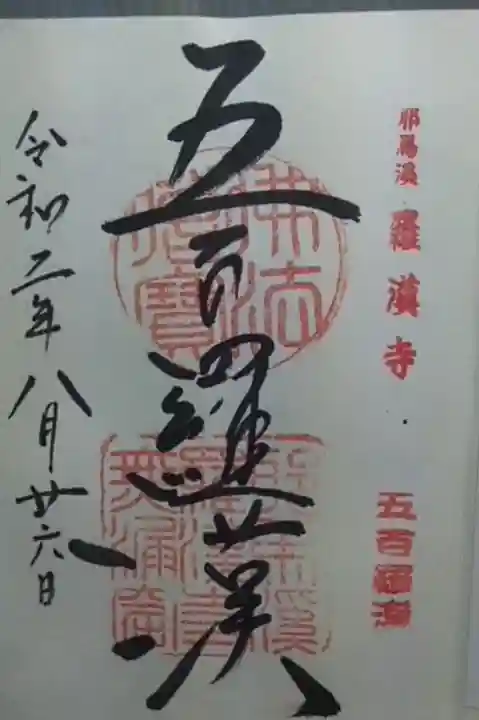 耶馬溪 羅漢寺
五百羅漢
五百羅漢
佛法僧寶
令和二年八月廿六日